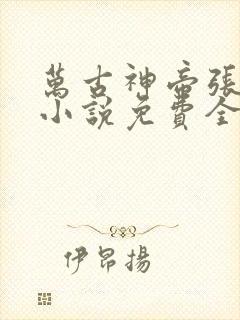 萬古神帝張
小說免費全
伊昂揚